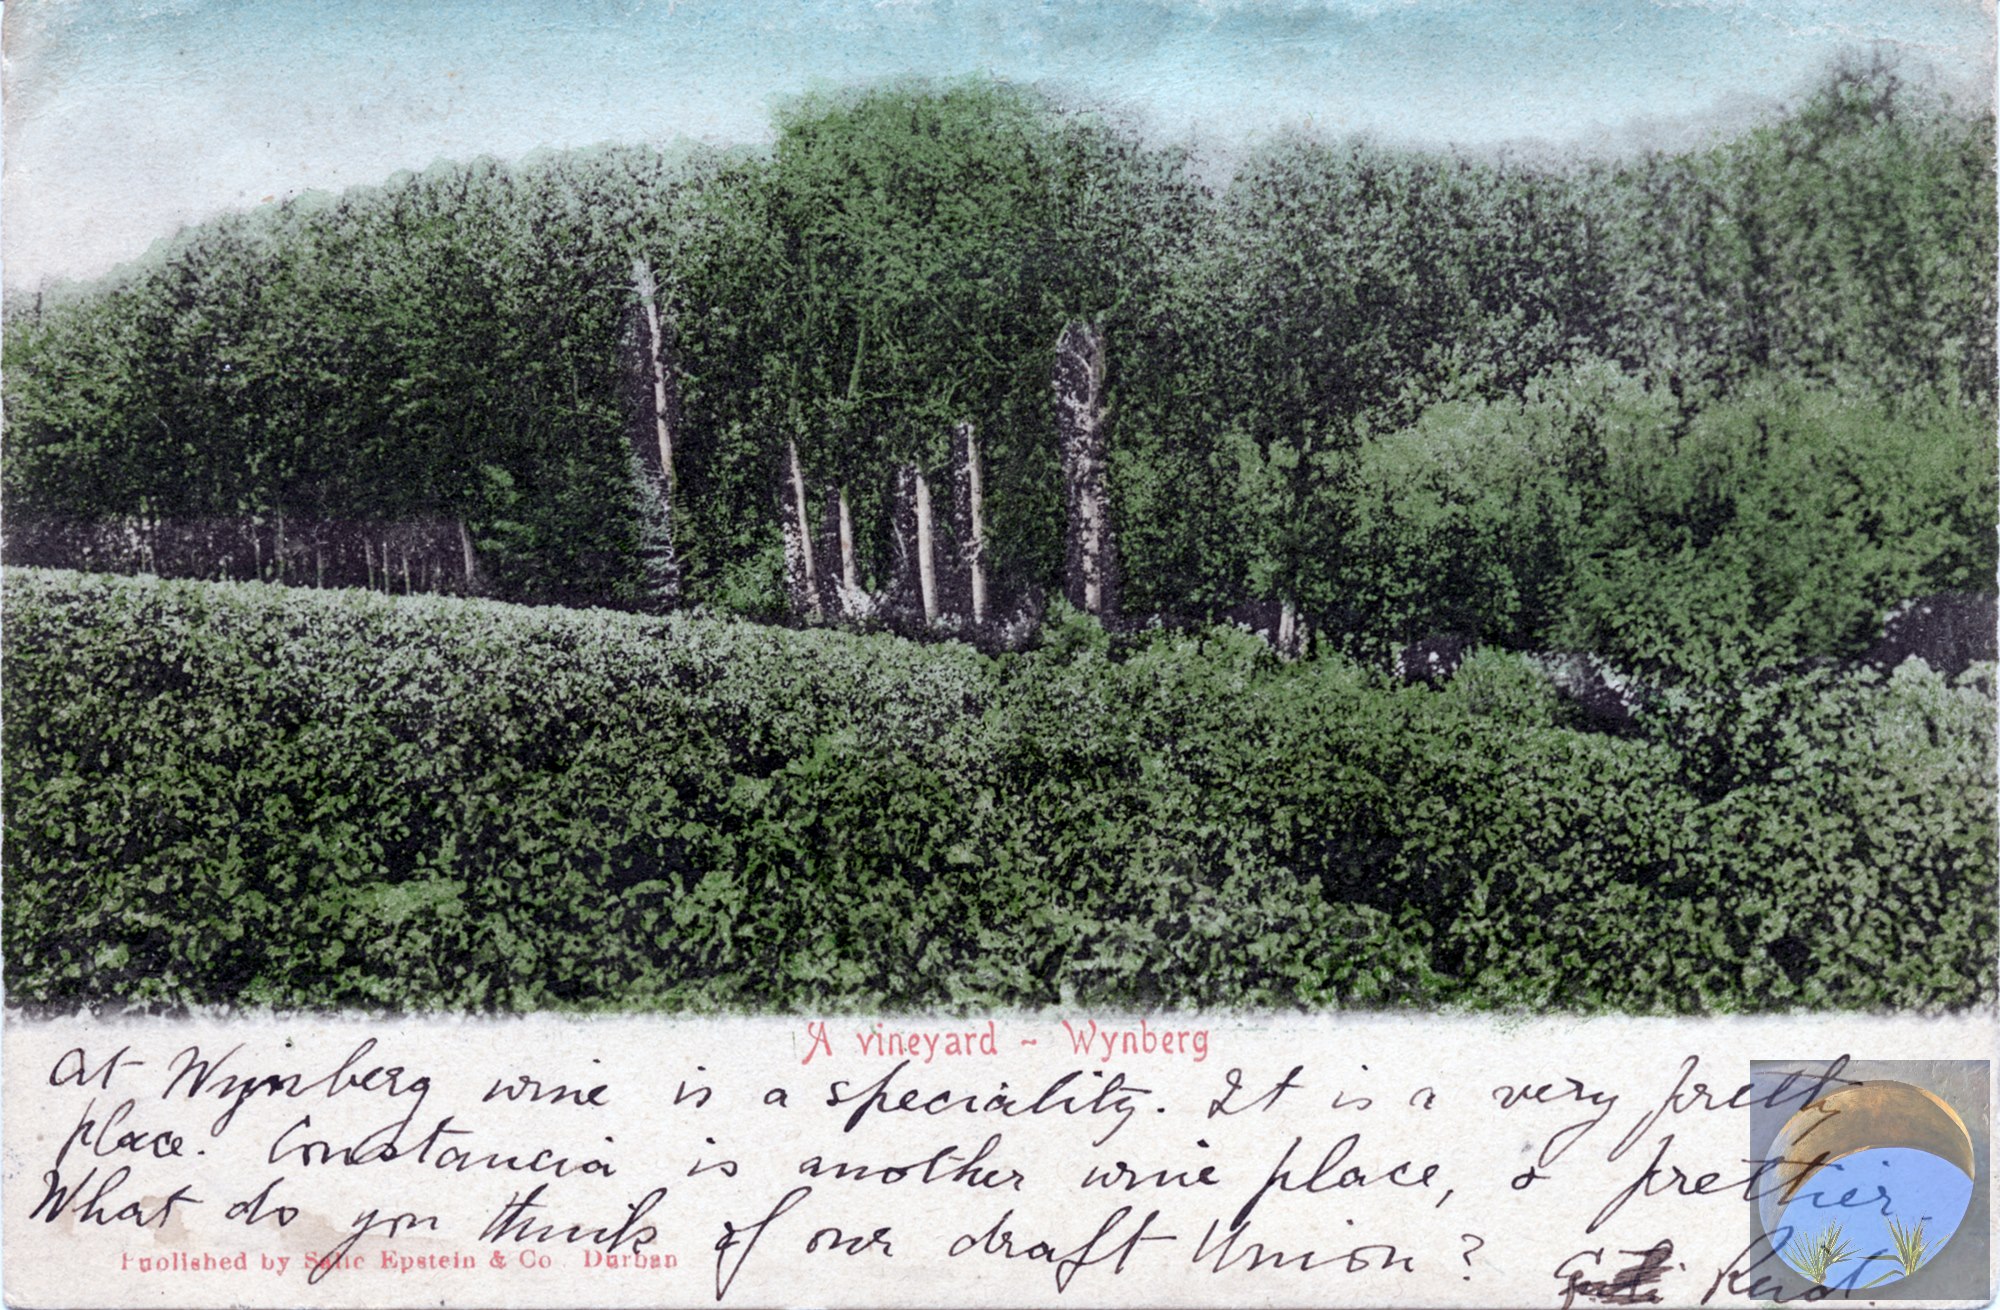 A vineyard ~ Wynberg
At Wynberg wine is a speciality. It is a very pretty
place. Constancia is another wine place, & prettier.
What do you think of our draft Union?
Published by Sallo Epstein & Co. Durban